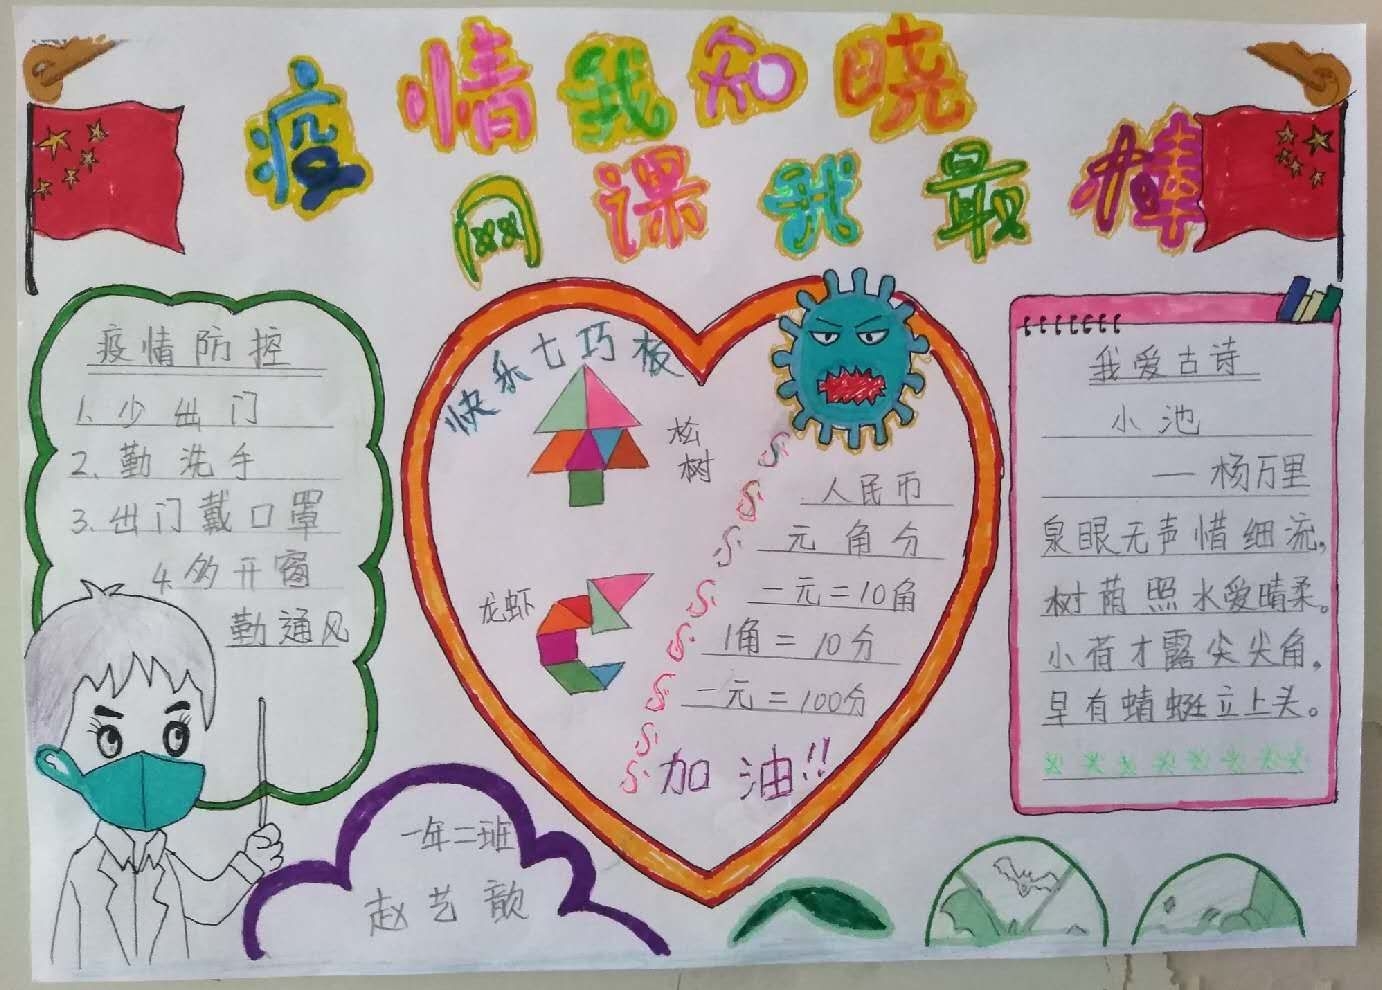 疫情我知晓
网课我最棒
疫情防控
1、少出门
2、勤洗手
3、出门戴口罩
4、多开窗
勤通风
快乐七巧板
松树
龙虾
人民币
元角分
一元=10角
1角=10分
一元=100分
加油!!
我爱古诗
小池
—杨万里
泉眼无声惜细流,
树荫照水爱晴柔。
小荷才露尖尖角,
早有蜻蜓立上头。
一年二班
赵艺歆